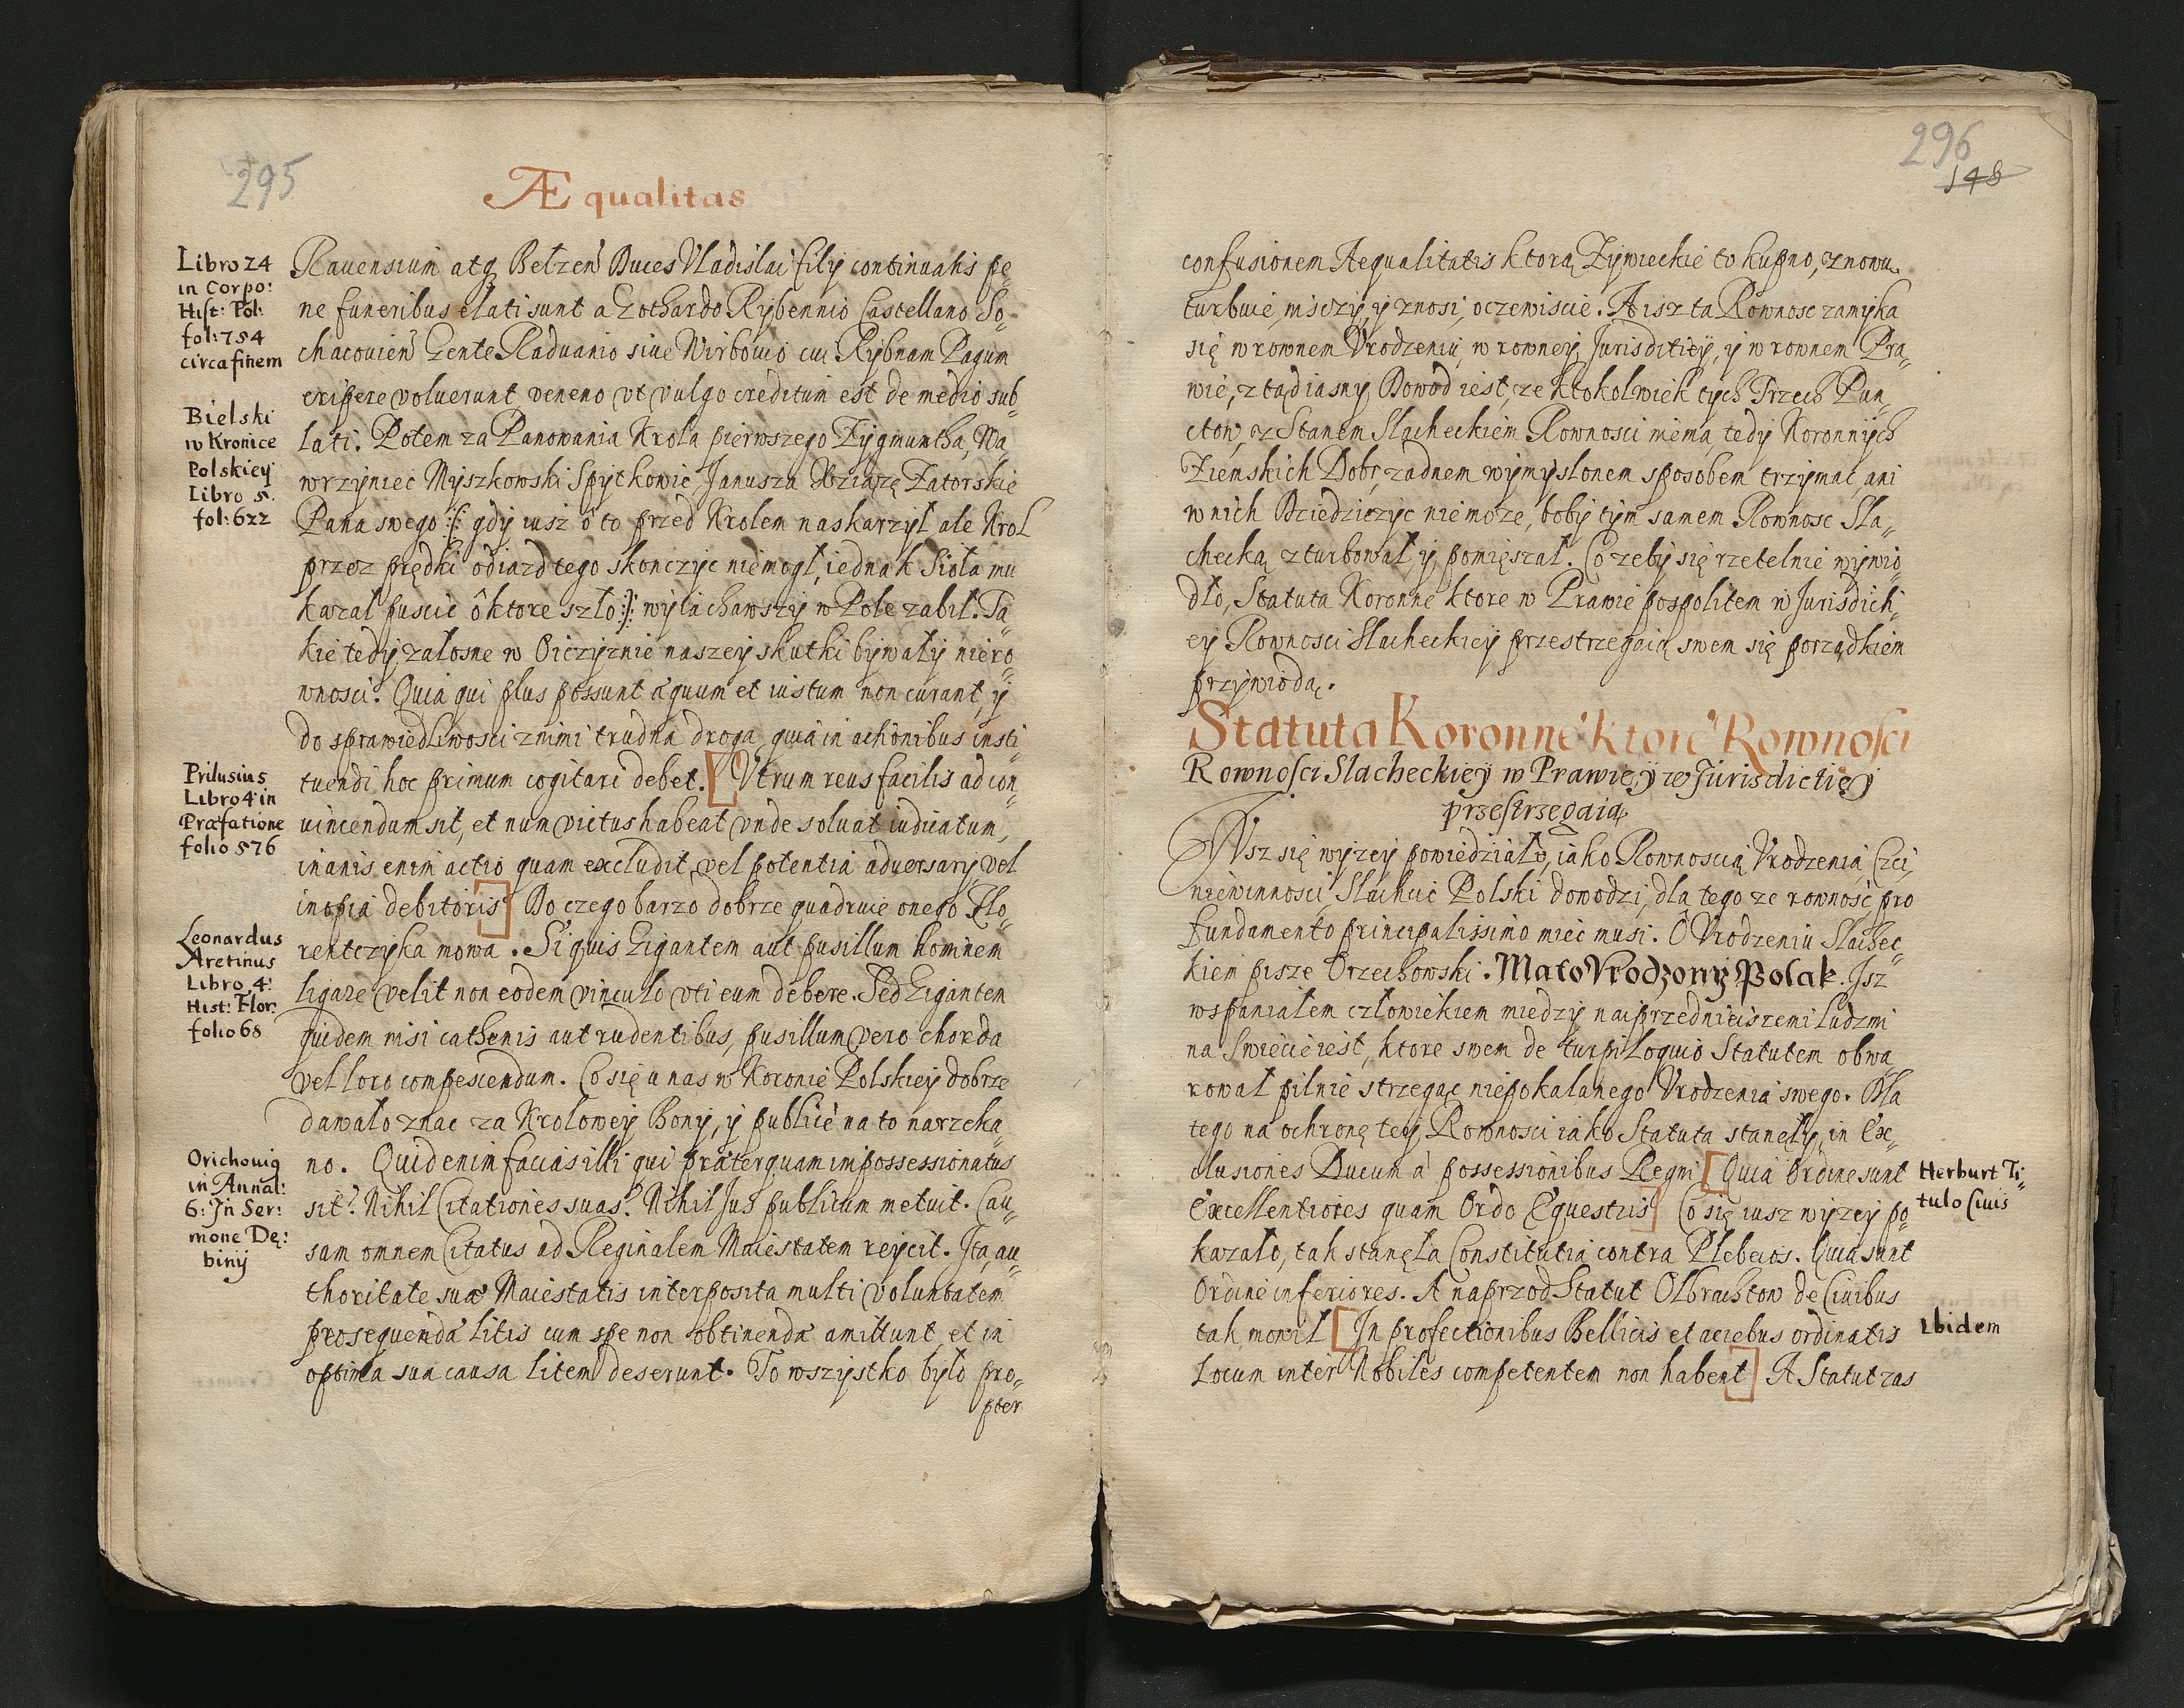 295
Æqualitas
Libro 24
in Corpo:
Hist: Pol:
fol: 754
circa finem
Bielski
w Kronice
Polskiey
Libro 5.
fol: 622
Prilusius
Libro 4 in
Præfatione
folio 576
Leonardus
Aretinus
Libro 4.
Hist: Flor:
folio 68
Orichouiq
in Annal:
6: Jn Ser:
mone Dę:
biny
Rauensium atq Belzen Duces Vladislai filij continuatis pe„
ne funeribus elati sunt a Gothardo Rybennio Castellano So„
chacouien Gente Raduanio siue Wirbouio cui Rybnam Pagum
eripere voluerunt veneno vt vulgo creditum est de medio sub„
lati. Potem za Panowania Krola pierwszego Zygmuntha, Wa„
wrzyniec Myszkowski Spytkowic Janusza Xziązę Zatorskie
Pana swego :(: gdy iusz o to przed Krolem naskarzył ale Krol
przez prędki odiazd tego skonczyc niemogł, iednak Sioła mu
kazał puscic o ktore szło :): wyiachawszy w Pole zabił. Ta„
kie tedy załosne w Oiczyznie naszey skutki bywały niero„
wnosci. Quia qui plus possunt æquum et iustum non curant, y
do sprawiedliwosci z nimi trudna droga, quia in actionibus insti
tuendi hoc primum cogitari debet. [Vtrum reus facilis ad con„
uincendum sit, et num victus habeat vnde soluat iudicatum,
inanis enim actio quam excludit, vel potentia aduersarij, vel
inopia debitoris] Do czego barzo dobrze quadruie onego Flo„
rentczyka mowa. Si quis Gigantem aut pusillum hominem
ligare velit non eodem vinculo vti eum debere. Sed Gigantem
quidem nisi cathenis aut rudentibus, pusillum vero chorda
vel loro compescendum. Co się u nas w Koronie Polskiey dobrze
dawało znac za Krolowey Bony, y publice na to narzeka„
no. Quid enim facias illi qui præterquam impossessionatus
sit? Nihil Citationes suas? Nihil Jus publicum metuit. Cau„
sam omnem Citatus ad Reginalem Maiestatem reijcit. Jta, au„
thoritate suæ Maiestatis interposita multi voluntatem
prosequendæ litis cum spe non obtinendæ amittunt, et in
optima sua causa litem deserunt. To wszystko było pro„
pter
296
148
confusionem Aequalitatis ktorą Zywieckie to kupno, znowu
turbuie, misczy, y znosi, oczewiscie. A isz ta Rownosc zamyka
się w rownem Vrodzeniu, w rowney Jurisditiey, y w rownem Pra„
wie, z tąd iasny Dowod iest, ze ktokolwiek tych Trzech Pun„
ctow, z Stanem Slacheckiem Rownosci niema, tedy Koronnych
Ziemskich Dobr, zadnem wymyslonem sposobem trzymac, ani
w nich Dziedziczyc niemoze, boby tym samem Rownosc Sla„
checką zturbował y pomięszał. Co zeby się rzetelnie wywio„
dło, Statuta Koronne ktore w Prawie pospolitem w Jurisdicti„
ey Rownosci Slacheckiey przestrzegaią swem się porządkiem
przywiodą.
Statuta Koronne ktore Rownosci
Rownosci Slacheckiey w Prawie, y w Jurisdictiey
przestrzegaią
Jvsz się wyzey powiedziało, iako Rownoscią Vrodzenia, Czci,
niewinnosci, Slachcic Polski dowodzi, dla tego ze rownosc pro
fundamento principalissimo miec musi. O Vrodzeniu Slachec„
kiem pisze Orzechowski. Mało Vrodzony Polak. Jsz
wspaniałem człowiekiem miedzy naiprzednieiszemi ludzmi
na Swiecie iest, ktore swem de turpiloquio Statutem obwa„
rował pilnie strzegąc niepokalanego Vrodzenia swego. Dla
tego na ochronę tey Rownosci iako Statuta stanęły, in Ex„
clusiones Ducum a possessionibus Regni [Quia Ordine sunt
Excellentiores quam Ordo Equestris] Co się iusz wyzey po„
kazało, tak stanęła Constitutia contra Plebeios. Quia sunt
Ordine inferiores. A naprzod Statut Olbrachtow de Ciuibus
tak mowił [Jn profectionibus Bellicis et aciebus ordinatis
Locum inter Nobiles competentem non habent] A Statut zas
Herburt Ti„
tulo Ciuis
Ibidem